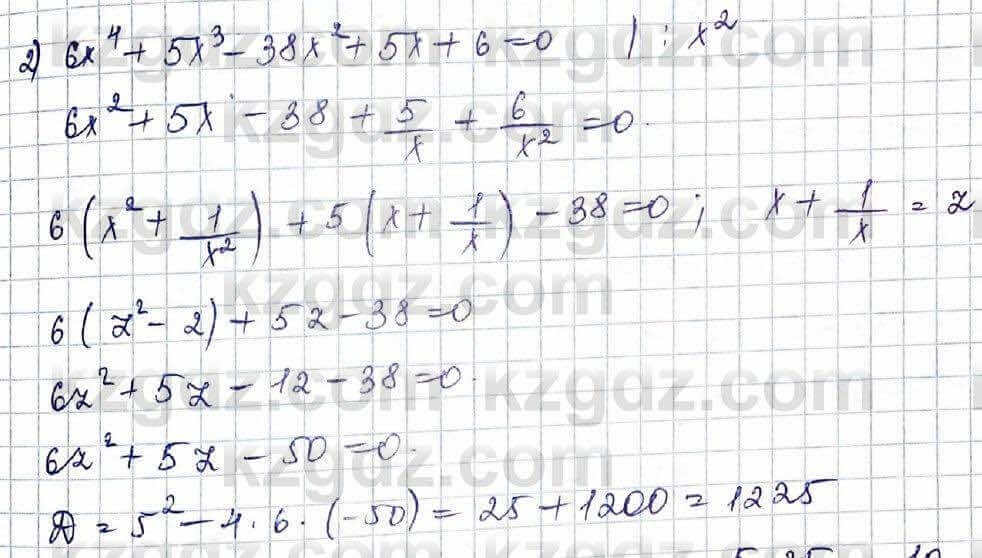 2) 6x⁴ + 5x³ - 38x² + 5x + 6 = 0 | : x²
6x² + 5x - 38 + 5/x + 6/x² = 0.
6(x² + 1/x²) + 5(x + 1/x) - 38 = 0; x + 1/x = z
6(z² - 2) + 5z - 38 = 0
6z² + 5z - 12 - 38 = 0.
6z² + 5z - 50 = 0.
D = 5² - 4 · 6 · (-50) = 25 + 1200 = 1225
kzgdz.com